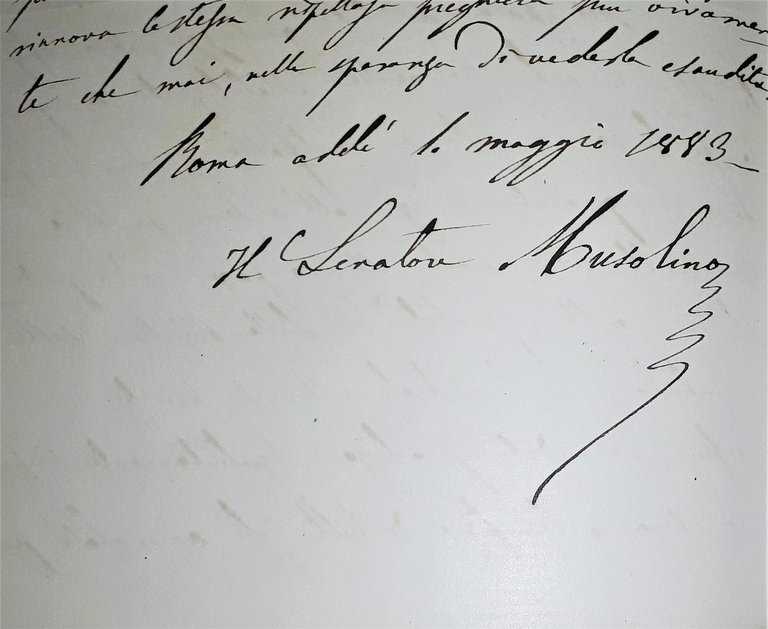 rinnova la stessa rispettosa preghiera più vivamen-
te che mai, nella speranza di vederla esaudita.
Roma addì 1. maggio 1883_
Il Senatore Musolino